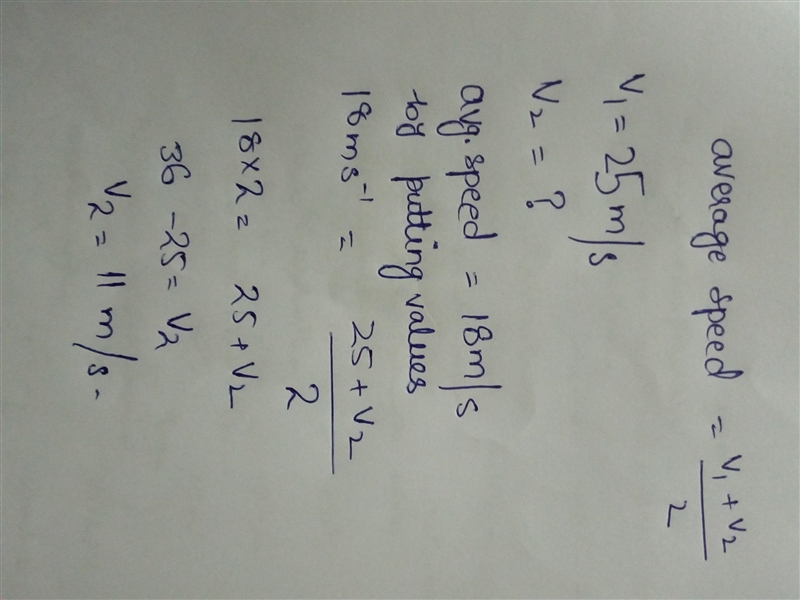 average speed = V₁ + V₂ / 2
V₁ = 25 m/s
V₂ = ?
avg. speed = 18 m/s
by putting values
18 ms⁻¹ = 25 + V₂ / 2
18 × 2 = 25 + V₂
36 - 25 = V₂
V₂ = 11 m/s.